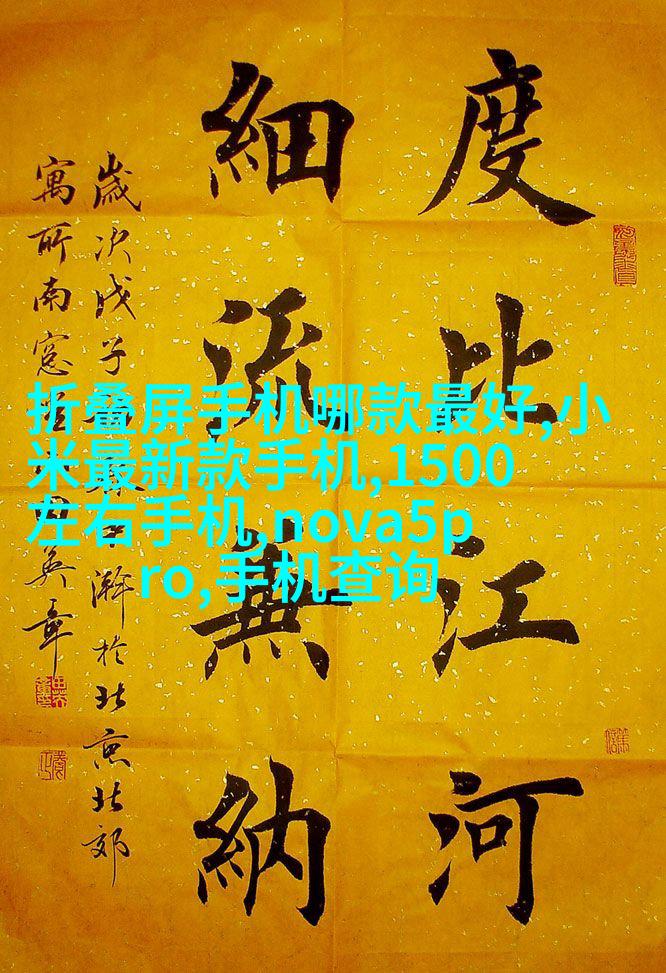 度比江河
細流無納
歲次戊子於北京北郊
寓所南窓英章
折叠屏手机哪款最好,小
米最新款手机,1500
左右手机,nova5p
ro,手机查询